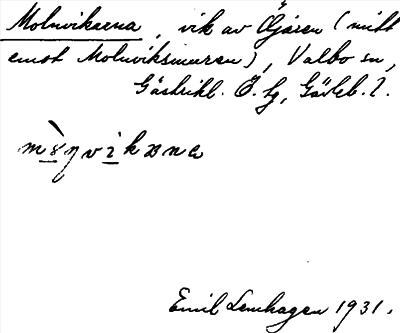 Molnvikarna, vik av Öjaren (mitt
emot Molnviksmuren), Valbo sn,
Gästrikl. Ö. tg, Gävleb. l.
Emil Lenhagen 1931.